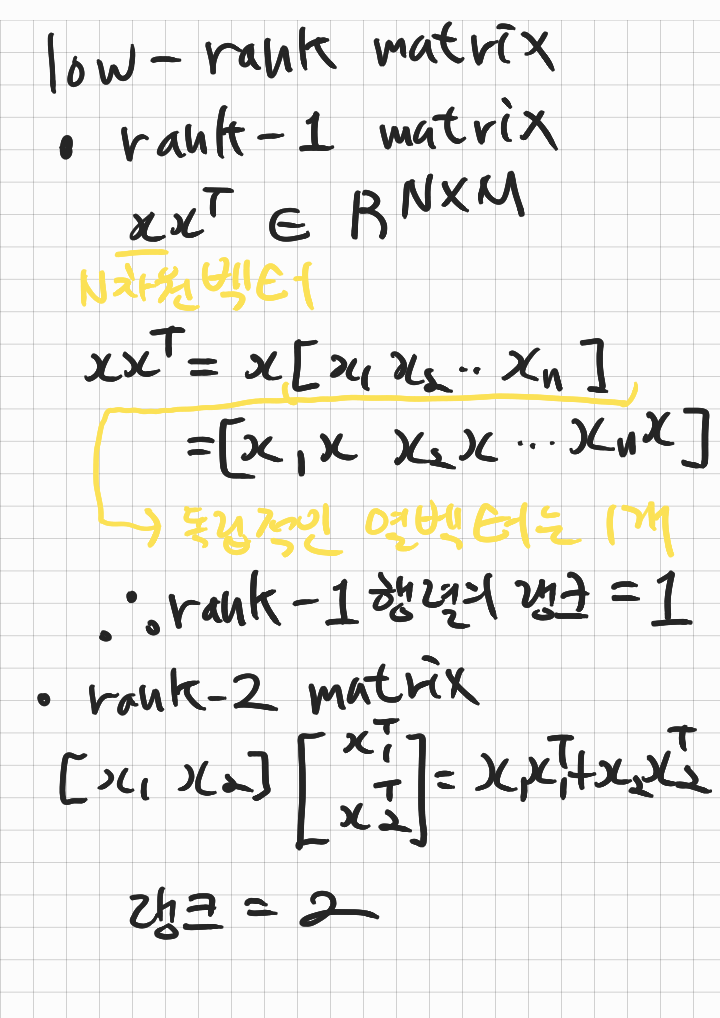 low-rank matrix
• rank-1 matrix
xxᵀ ∈ R^{N×M}
N차원벡터
xxᵀ = x[x₁ x₂ ·· xₙ]
=[x₁x x₂x ··· xₙx]
→ 독립적인 열벡터는 1개
∴ rank-1 행렬의 랭크 = 1
• rank-2 matrix
[x₁ x₂] [x₁ᵀ x₂ᵀ] = x₁x₁ᵀ+x₂x₂ᵀ
랭크 = 2